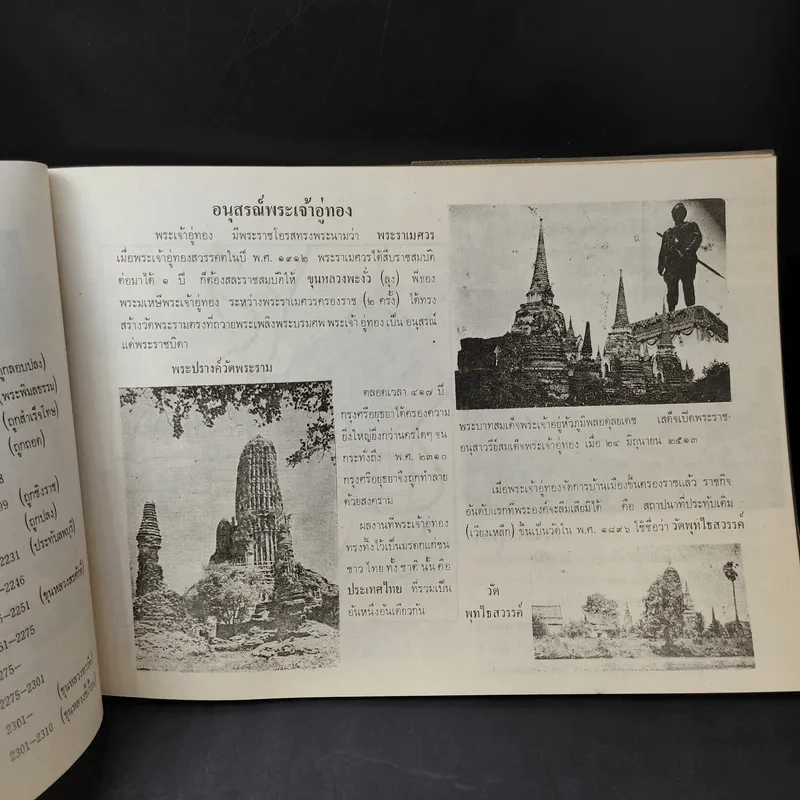 ถูกลอบปลง)
พระพิมลธรรม)
(ถูกสำเร็จโทษ)
(ถูกถอด)
8
09 (ถูกชิงราช)
(ถูกปลง)
2231 (ประทับลพบุรี)
–2246
5–2251 (ขุนหลวงสรศักดิ์)
51–2275
2275–
2275–2301
2301–
2301–2310
อนุสรณ์พระเจ้าอู่ทอง
พระเจ้าอู่ทอง มีพระราชโอรสทรงพระนามว่า พระราเมศวร
เมื่อพระเจ้าอู่ทองสวรรคตในปี พ.ศ. ๑๙๑๒ พระราเมศวรได้สืบราชสมบัติ
ต่อมาได้ ๑ ปี ก็ต้องสละราชสมบัติให้ ขุนหลวงพะงั่ว (ลุง) พี่ของ
พระมเหษีพระเจ้าอู่ทอง ระหว่างพระราเมศวรครองราช (๒ ครั้ง) ได้ทรง
สร้างวัดพระรามตรงที่ถวายพระเพลิงพระบรมศพ พระเจ้าอู่ทอง เป็น อนุสรณ์
แด่พระราชบิดา
พระปรางค์วัดพระราม
ตลอดเวลา ๔๑๗ ปี
กรุงศรีอยุธยาได้ครองความ
ยิ่งใหญ่ยิ่งกว่านครใดๆ จน
กระทั่งถึง พ.ศ. ๒๓๑๐
กรุงศรีอยุธยาจึงถูกทำลาย
ด้วยสงคราม
ผลงานที่พระเจ้าอู่ทอง
ทรงทิ้งไว้เป็นมรดกแก่ชน
ชาวไทยทั้งชาตินั้นคือ
ประเทศไทย ที่รวมเป็น
อันหนึ่งอันเดียวกัน
พระบาทสมเด็จพระเจ้าอยู่หัวภูมิพลอดุลยเดช เสด็จเปิดพระราช-
อนุสาวรีย์สมเด็จพระเจ้าอู่ทอง เมื่อ ๒๔ มิถุนายน ๒๕๑๓
เมื่อพระเจ้าอู่ทองจัดการบ้านเมืองขึ้นครองราชแล้ว ราชกิจ
อันดับแรกที่พระองค์จะลืมเสียมิได้ คือ สถาปนาที่ประทับเดิม
(เวียงเหล็ก) ขึ้นเป็นวัดใน พ.ศ. ๑๘๙๖ ใช้ชื่อว่า วัดพุทไธสวรรค์
วัด
พุทไธสวรรค์